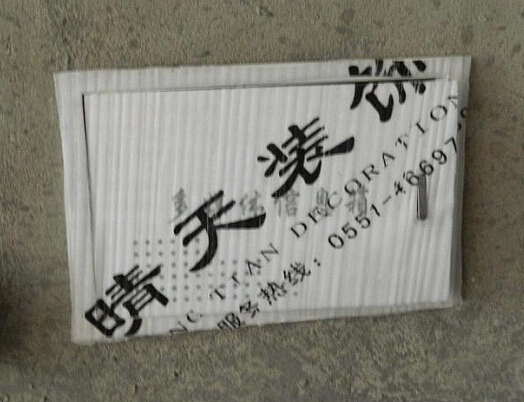 晴天装饰
NG TIAN DECORATION
服务热线：0551-46697
多媒体信息箱